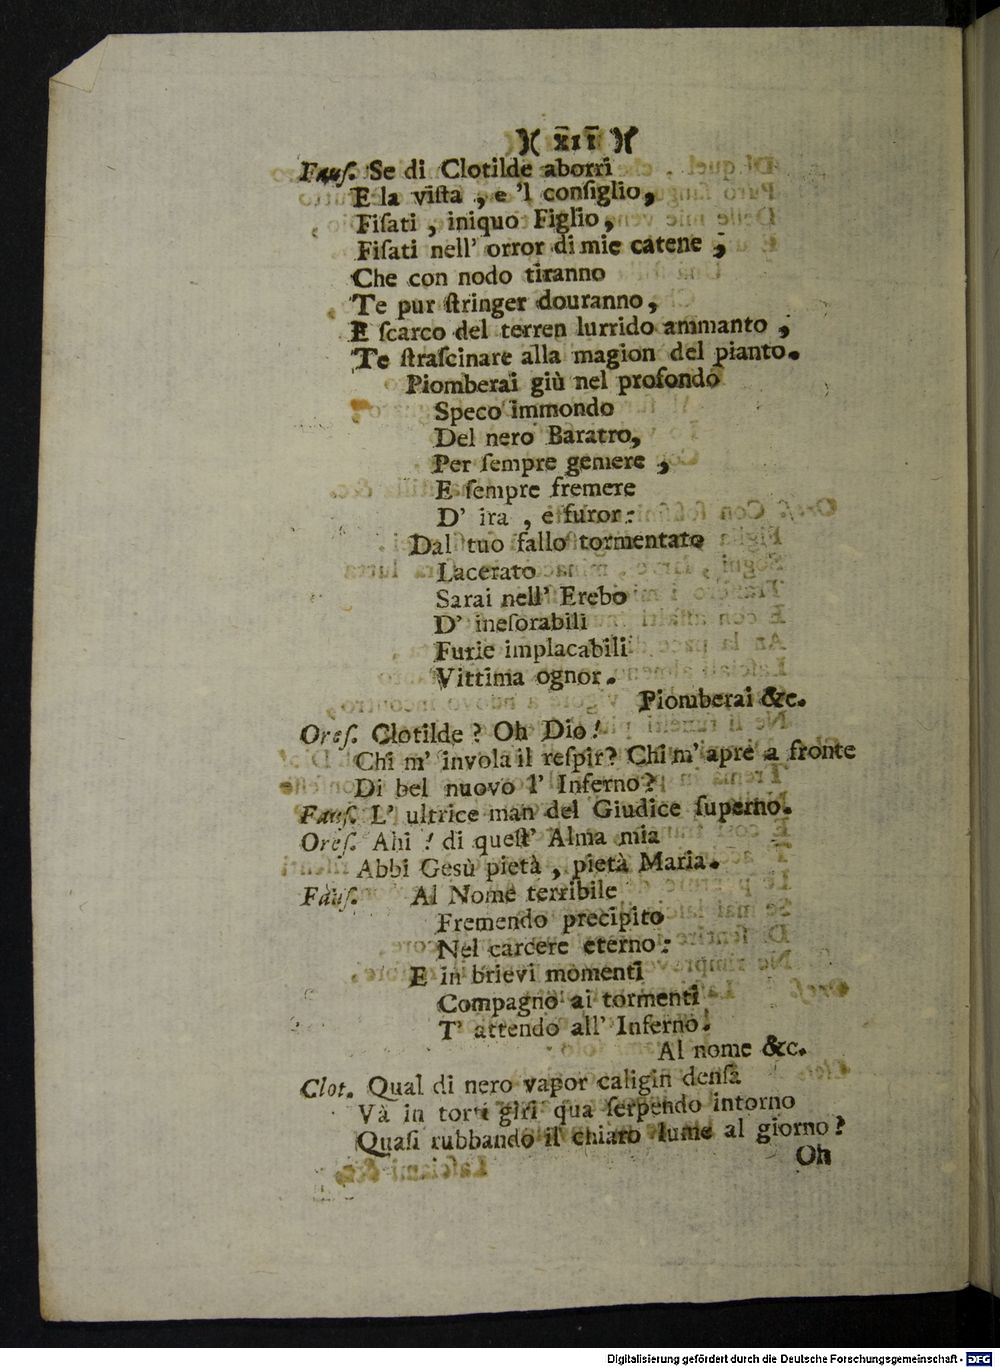 )( XII )(
Fauſ. Se di Clotilde aborri
E la viſta , e 'l conſiglio,
Fiſati , iniquo Figlio,
Fiſati nell' orror di mie catene ;
Che con nodo tiranno
Te pur ſtringer douranno,
E ſcarco del terren lurrido ammanto ,
Te ſtraſcinare alla magion del pianto.
Piomberai giù nel profondo
Speco immondo
Del nero Baratro,
Per ſempre gemere ,
E ſempre fremere
D' ira , e furor:
Dal tuo fallo tormentato
Lacerato
Sarai nell' Erebo
D' ineſorabili
Furie implacabili
Vittima ognor.
Piomberai &c.
Oreſ. Clotilde ? Oh Dio !
Chi m' invola il reſpir? Chi m' apre a fronte
Di bel nuovo l' Inferno?
Fauſ. L' ultrice man del Giudice ſuperno.
Oreſ. Ahi ! di queſt' Alma mia
Abbi Gesù pietà , pietà Maria.
Fauſ. Al Nome terribile
Fremendo precipito
Nel carcere eterno:
E in brievi momenti
Compagno ai tormenti
T' attendo all' Inferno.
Al nome &c.
Clot. Qual di nero vapor caligin denſa
Và in torti giri qua ſerpendo intorno
Quaſi rubbando il chiaro lume al giorno?
Oh
Digitalisierung gefördert durch die Deutsche Forschungsgemeinschaft - DFG